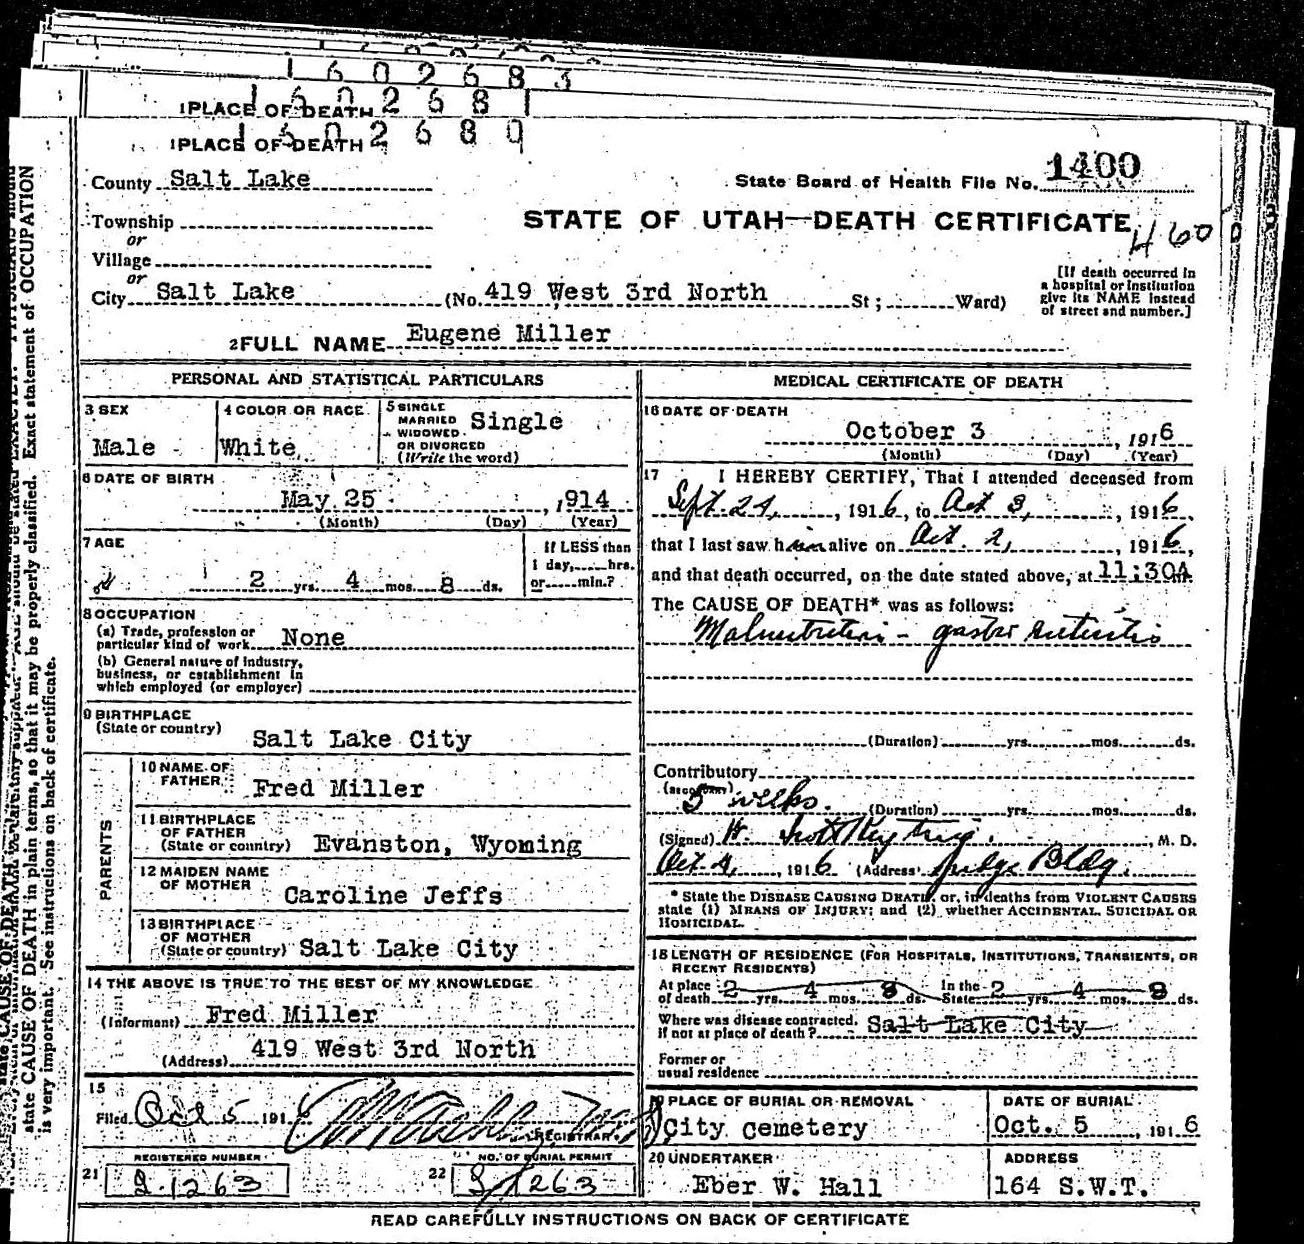 1602683
1 PLACE OF DEATH 1602681
1 PLACE OF DEATH 1602680
County Salt Lake
State Board of Health File No. 1400
Township
STATE OF UTAH—DEATH CERTIFICATE
460
or
Village
or
City Salt Lake (No. 419 West 3rd North St; Ward)
[If death occurred in a hospital or institution give its NAME instead of street and number.]
2 FULL NAME Eugene Miller
PERSONAL AND STATISTICAL PARTICULARS
3 SEX Male
4 COLOR OR RACE White
5 SINGLE MARRIED WIDOWED OR DIVORCED (Write the word) Single
6 DATE OF BIRTH
May 25, 1914
(Month) (Day) (Year)
7 AGE
2 yrs. 4 mos. 8 ds.
If LESS than 1 day, hrs. or min.?
8 OCCUPATION
(a) Trade, profession or particular kind of work None
(b) General nature of industry, business, or establishment in which employed (or employer)
9 BIRTHPLACE
(State or country) Salt Lake City
PARENTS
10 NAME OF FATHER Fred Miller
11 BIRTHPLACE OF FATHER (State or country) Evanston, Wyoming
12 MAIDEN NAME OF MOTHER Caroline Jeffs
13 BIRTHPLACE OF MOTHER (State or country) Salt Lake City
14 THE ABOVE IS TRUE TO THE BEST OF MY KNOWLEDGE
(Informant) Fred Miller
(Address) 419 West 3rd North
15
Filed Oct 5 1916
REGISTRAR
REGISTERED NUMBER
21
NO. OF BURIAL PERMIT
22
MEDICAL CERTIFICATE OF DEATH
16 DATE OF DEATH
October 3, 1916
(Month) (Day) (Year)
17 I HEREBY CERTIFY, That I attended deceased from
Sept. 24, 1916, to Oct 3, 1916,
that I last saw him alive on Oct. 2, 1916,
and that death occurred, on the date stated above, at 11:30A m.
The CAUSE OF DEATH* was as follows:
Malnutrition - gastro enteritis
(Duration) yrs. mos. ds.
Contributory
(Secondary)
3 weeks. (Duration) yrs. mos. ds.
(Signed) W. Scott M. D.
Oct. 4, 1916 (Address) Judge Bldg.
* State the DISEASE CAUSING DEATH, or, in deaths from VIOLENT CAUSES
state (1) MEANS OF INJURY; and (2) whether ACCIDENTAL, SUICIDAL OR
HOMICIDAL.
18 LENGTH OF RESIDENCE (FOR HOSPITALS, INSTITUTIONS, TRANSIENTS, OR RECENT RESIDENTS)
At place of death 2 yrs. 4 mos. 8 ds. In the State 2 yrs. 4 mos. 8 ds.
Where was disease contracted, if not at place of death? Salt Lake City
Former or usual residence
19 PLACE OF BURIAL OR REMOVAL
City cemetery
DATE OF BURIAL
Oct. 5, 1916
20 UNDERTAKER
Eber W. Hall
ADDRESS
164 S.W.T.
READ CAREFULLY INSTRUCTIONS ON BACK OF CERTIFICATE
state CAUSE OF DEATH in plain terms, so that it may be properly classified. Exact statement of OCCUPATION
is very important. See instructions on back of certificate.